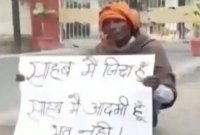 साहब मैं जिंदा हूं
साहब मैं आदमी हूं
भूत नहीं!